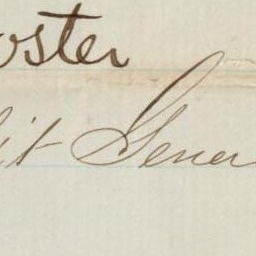 oster
it Gener